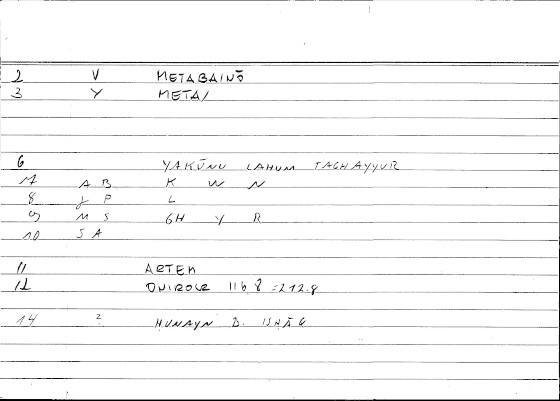 2 V METABAINŌ
3 Y META/
6 YAKŪNU LAHUM TAGHAYYUR
17 A B K W N
8 J P L
9 M S GH Y R
10 S A
11 ARTEM
12 ONIROCR 116 8 = 212.8
14 2 HUNAYN B. ISHĀQ